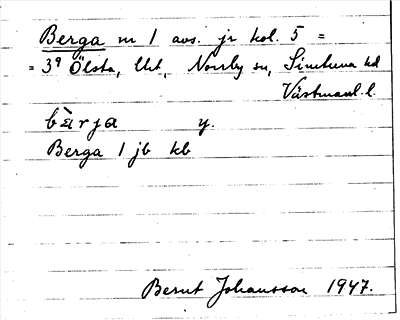 Berga nr 1 avs. jr kol. 5 =
= 3⁹ Ölsta, Norrby sn, Simtuna hd
Västmanl. l.
bàrja y.
Berga 1 jb kb
Bernt Johansson 1947.